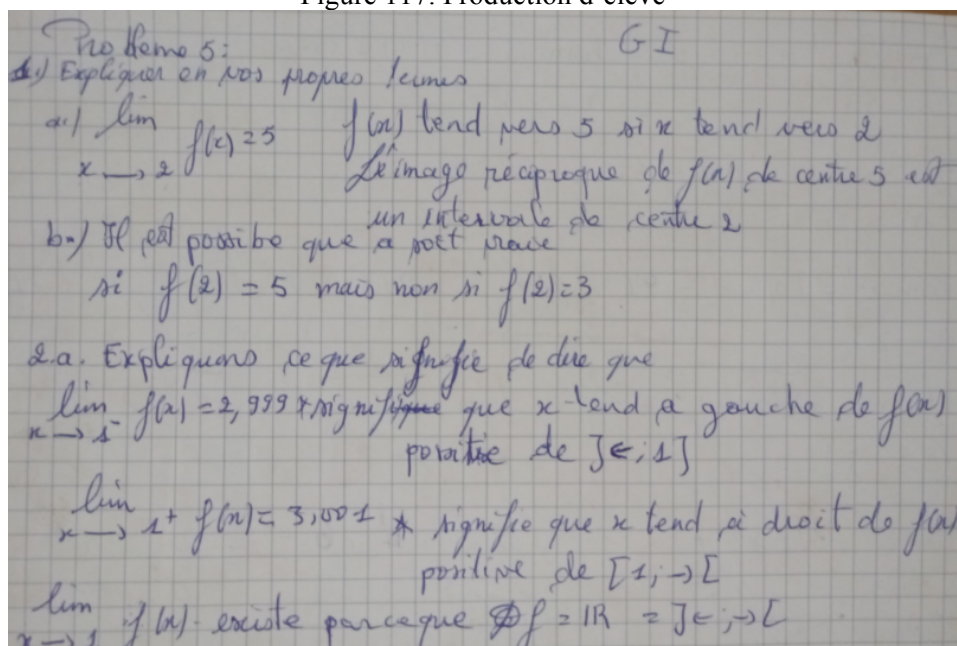 Figure 117: Production d'élève
Problème 5: GI
1.) Expliquer en vos propres termes
a.) lim f(x)=5 f(x) tend vers 5 si x tend vers 2
x → 2
L'image réciproque de f(x) de centre 5 est
un intervale de centre 2
b.) Il est possibe que a soit vraie
si f(2) = 5 mais non si f(2)=3
2.a. Expliquons ce que signifie de dire que
lim f(x) = 2,999 * signifie que x tend a gauche de f(x)
x → 1⁻
positive de ]←;1]
lim f(x) = 3,001 * signifie que x tend à droit de f(x)
x → 1⁺
positive de [1;→[
lim f(x) existe parceque Df = IR = ]←;→[
x → 1